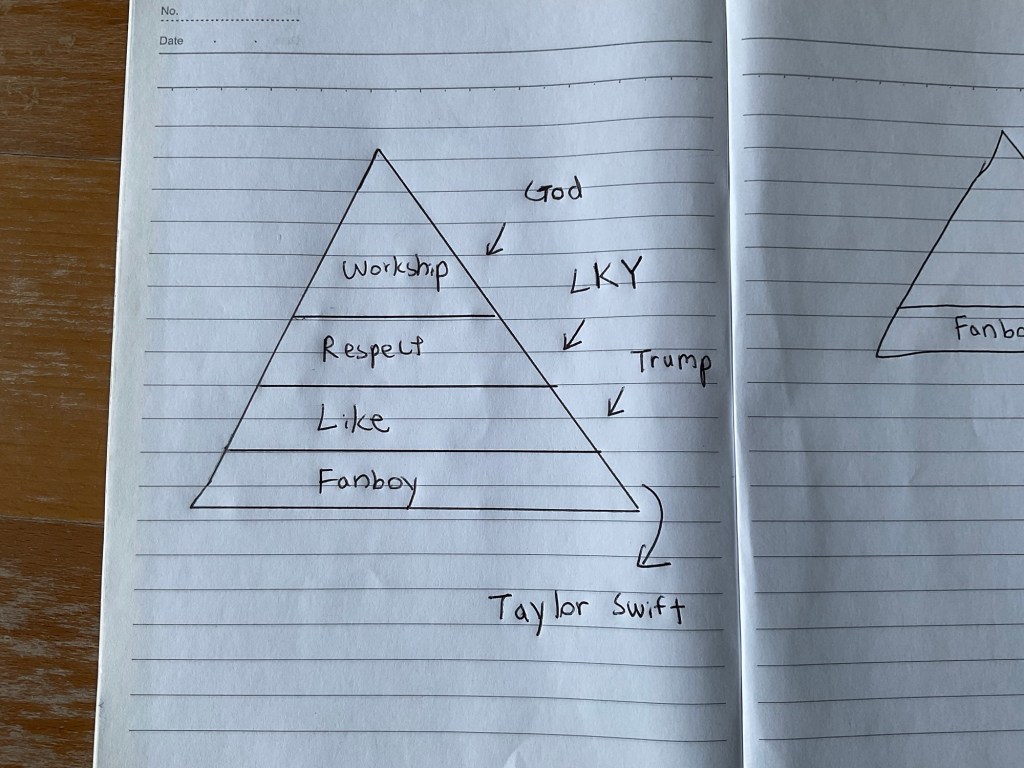 No.
Date
God
Workship
LKY
Respect
Trump
Like
Fanboy
Taylor Swift
Fanbo